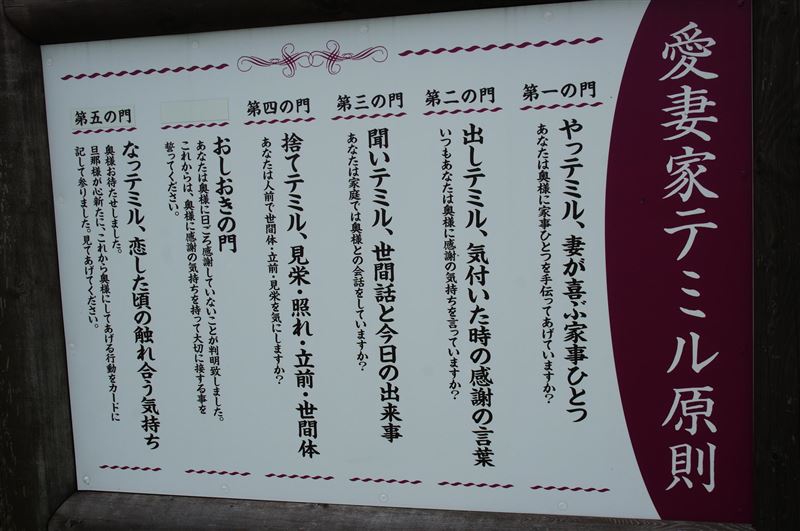 愛妻家テミル原則
第一の門
やっテミル、妻が喜ぶ家事ひとつ
あなたは奥様に家事ひとつを手伝ってあげていますか?
第二の門
出しテミル、気付いた時の感謝の言葉
いつもあなたは奥様に感謝の気持ちを言っていますか?
第三の門
聞いテミル、世間話と今日の出来事
あなたは家庭では奥様との会話をしていますか?
第四の門
捨てテミル、見栄・照れ・立前・世間体
あなたは人前で世間体・立前・見栄を気にしますか?
おしおきの門
あなたは奥様に日ごろ感謝していないことが判明致しました。
これからは、奥様に感謝の気持ちを持って大切に接する事を
誓ってください。
第五の門
なっテミル、恋した頃の触れ合う気持ち
奥様お待たせしました。
旦那様が心新たに、これから奥様にしてあげる行動をカードに
記して参りました。見てあげてください。